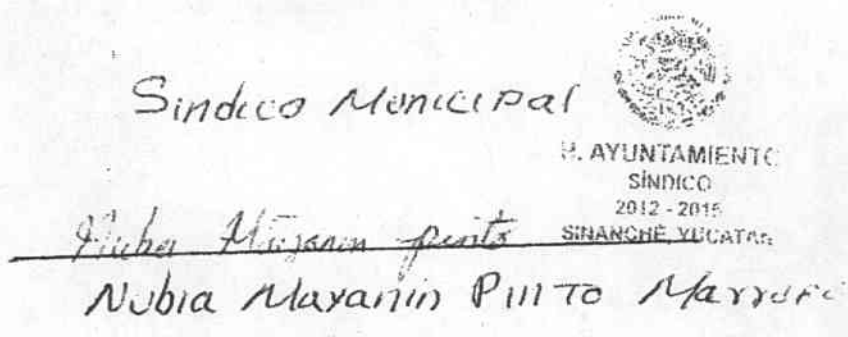 Sindico Municipal
H. AYUNTAMIENTO
SÍNDICO
2012 - 2015
SINANCHÉ YUCATAN
Nubia Mayanin pinto
Nubia Mayanin Pinto Marrufo